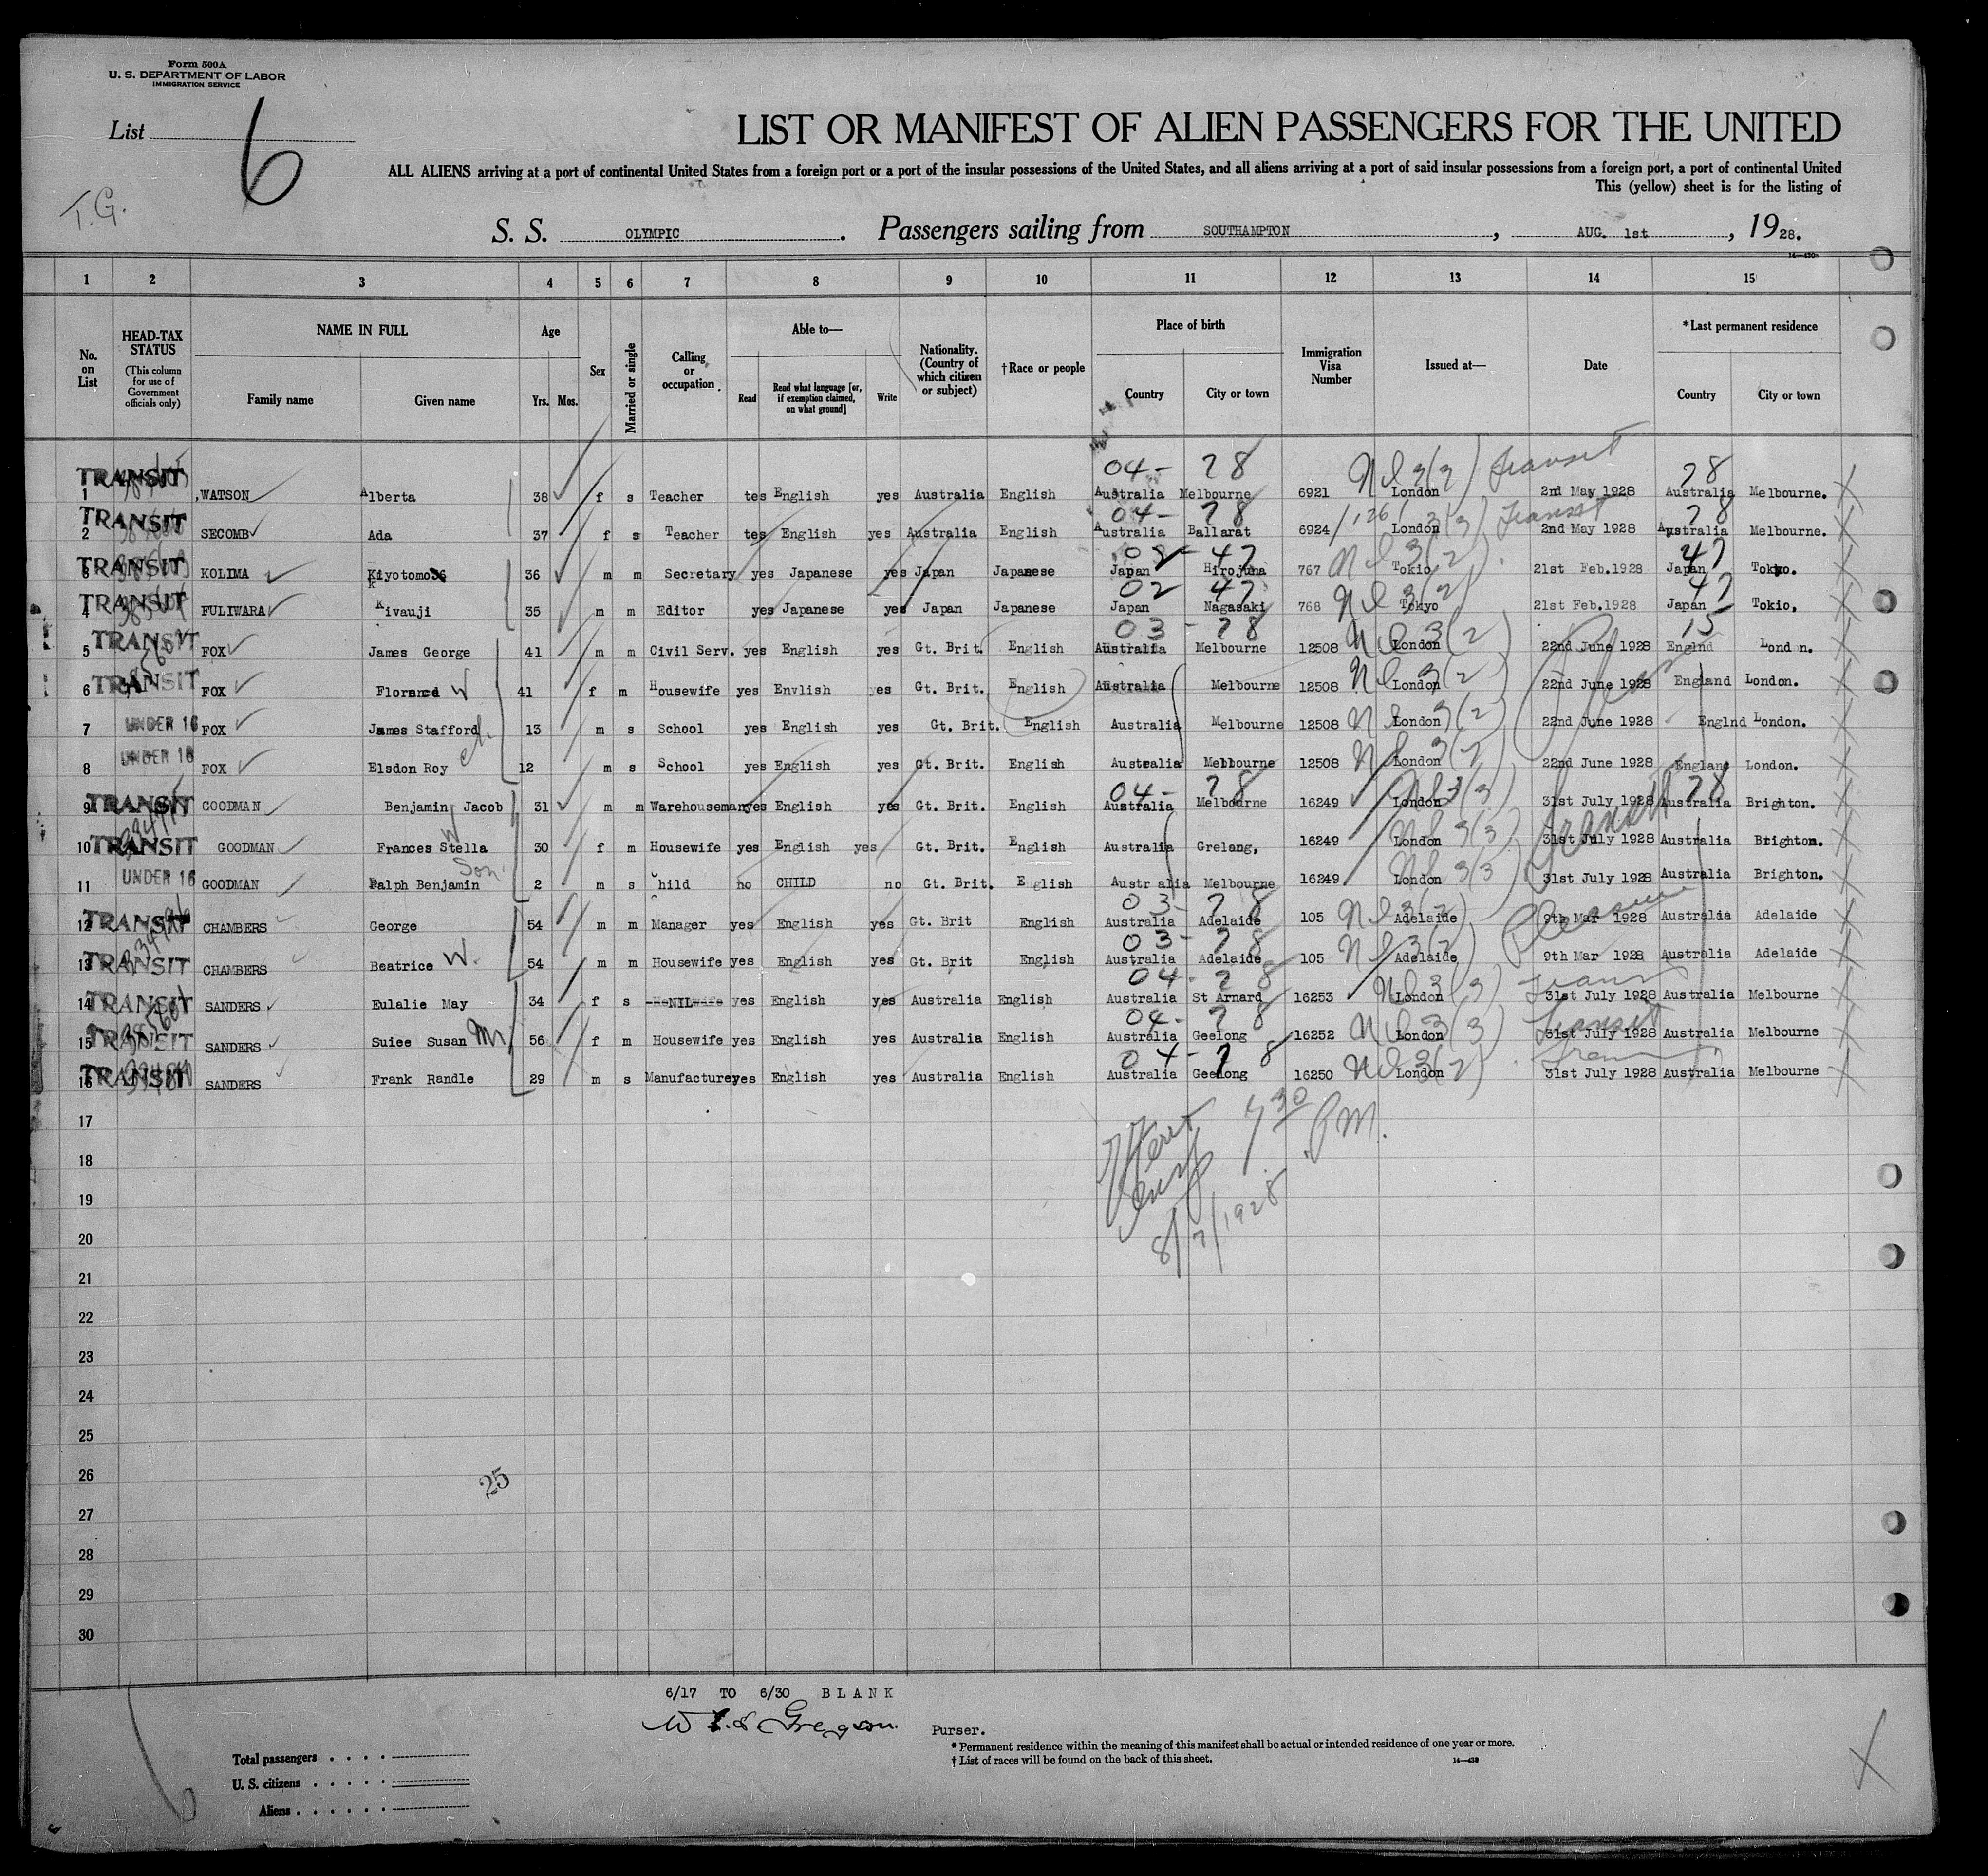 Form 500A
U. S. DEPARTMENT OF LABOR
IMMIGRATION SERVICE
List 6
T.G.
LIST OR MANIFEST OF ALIEN PASSENGERS FOR THE UNITED
ALL ALIENS arriving at a port of continental United States from a foreign port or a port of the insular possessions of the United States, and all aliens arriving at a port of said insular possessions from a foreign port, a port of continental United
This (yellow) sheet is for the listing of
S. S. OLYMPIC. Passengers sailing from SOUTHAMPTON, AUG. 1st, 1928.
1 2 3 4 5 6 7 8 9 10 11 12 13 14 15
No. on List
HEAD-TAX STATUS (This column for use of Government officials only)
NAME IN FULL Family name Given name
Age Yrs. Mos.
Sex
Married or single
Calling or occupation
Able to— Read Read what language [or, if exemption claimed, on what ground] Write
Nationality. (Country of which citizen or subject)
†Race or people
Place of birth Country City or town
Immigration Visa Number
Issued at—
Date
*Last permanent residence Country City or town
04- 28 Transit 28
TRANSIT 1 WATSON Alberta 38 f s Teacher tes English yes Australia English Australia Melbourne 6921 London 2nd May 1928 Australia Melbourne.
04- 28 Transit 28
TRANSIT 2 SECOMB Ada 37 f s Teacher tes English yes Australia English Australia Ballarat 6924 /126/ London 2nd May 1928 Australia Melbourne.
47 47
TRANSIT 3 KOLIMA Kiyotomo 36 m m Secretary yes Japanese yes Japan Japanese Japan 767 Tokio 21st Feb.1928 Japan Tokyo.
02 47 47
TRANSIT 4 FULIWARA Kivauji 35 m m Editor yes Japanese yes Japan Japanese Japan Nagasaki 768 Tokyo 21st Feb.1928 Japan Tokio,
03 - 28 15
TRANSIT 5 FOX James George 41 m m Civil Serv. yes English yes Gt. Brit. English Australia Melbourne 12508 London 22nd June 1928 Englnd Lond n.
TRANSIT 6 FOX Florance W 41 f m Housewife yes Envlish yes Gt. Brit. English Australia Melbourne 12508 London 22nd June 1928 England London.
UNDER 16 7 FOX James Stafford 13 m s School yes English yes Gt. Brit. English Australia Melbourne 12508 London 22nd June 1928 Englnd London.
UNDER 16 8 FOX Elsdon Roy 12 m s School yes English yes Gt. Brit. English Australia Melbourne 12508 London 22nd June 1928 England London.
04- 28 28
TRANSIT 9 GOODMAN Benjamin Jacob 31 m m Warehouseman yes English yes Gt. Brit. English Australia Melbourne 16249 London 31st July 1928 Australia Brighton.
TRANSIT 10 GOODMAN Frances Stella W 30 f m Housewife yes English yes Gt. Brit. English Australia Grelang, 16249 London 31st July 1928 Transit Australia Brighton.
UNDER 16 11 GOODMAN Ralph Benjamin Son 2 m s Child no CHILD no Gt. Brit. English Australia Melbourne 16249 London 31st July 1928 Australia Brighton.
03- 28
TRANSIT 12 CHAMBERS George 54 m m Manager yes English yes Gt. Brit English Australia Adelaide 105 Adelaide 9th Mar 1928 Pleasure Australia Adelaide
03- 28
TRANSIT 13 CHAMBERS Beatrice W. 54 m m Housewife yes English yes Gt. Brit English Australia Adelaide 105 Adelaide 9th Mar 1928 Australia Adelaide
04- 28
TRANSIT 14 SANDERS Eulalie May 34 f s NIL yes English yes Australia English Australia St Arnard 16253 London 31st July 1928 Australia Melbourne
04- 28 Transit
TRANSIT 15 SANDERS Suiee Susan M 56 f m Housewife yes English yes Australia English Australia Geelong 16252 London 31st July 1928 Australia Melbourne
04- 28
TRANSIT 16 SANDERS Frank Randle 29 m s Manufacturer yes English yes Australia English Australia Geelong 16250 London 31st July 1928 Australia Melbourne
17
18
19
20
21
22
23
24
25
26
27
28
29
30
7 30 P.M.
8/7/1928
25
6/17 TO 6/30 BLANK
Purser.
* Permanent residence within the meaning of this manifest shall be actual or intended residence of one year or more.
† List of races will be found on the back of this sheet.
Total passengers
U. S. citizens
Aliens